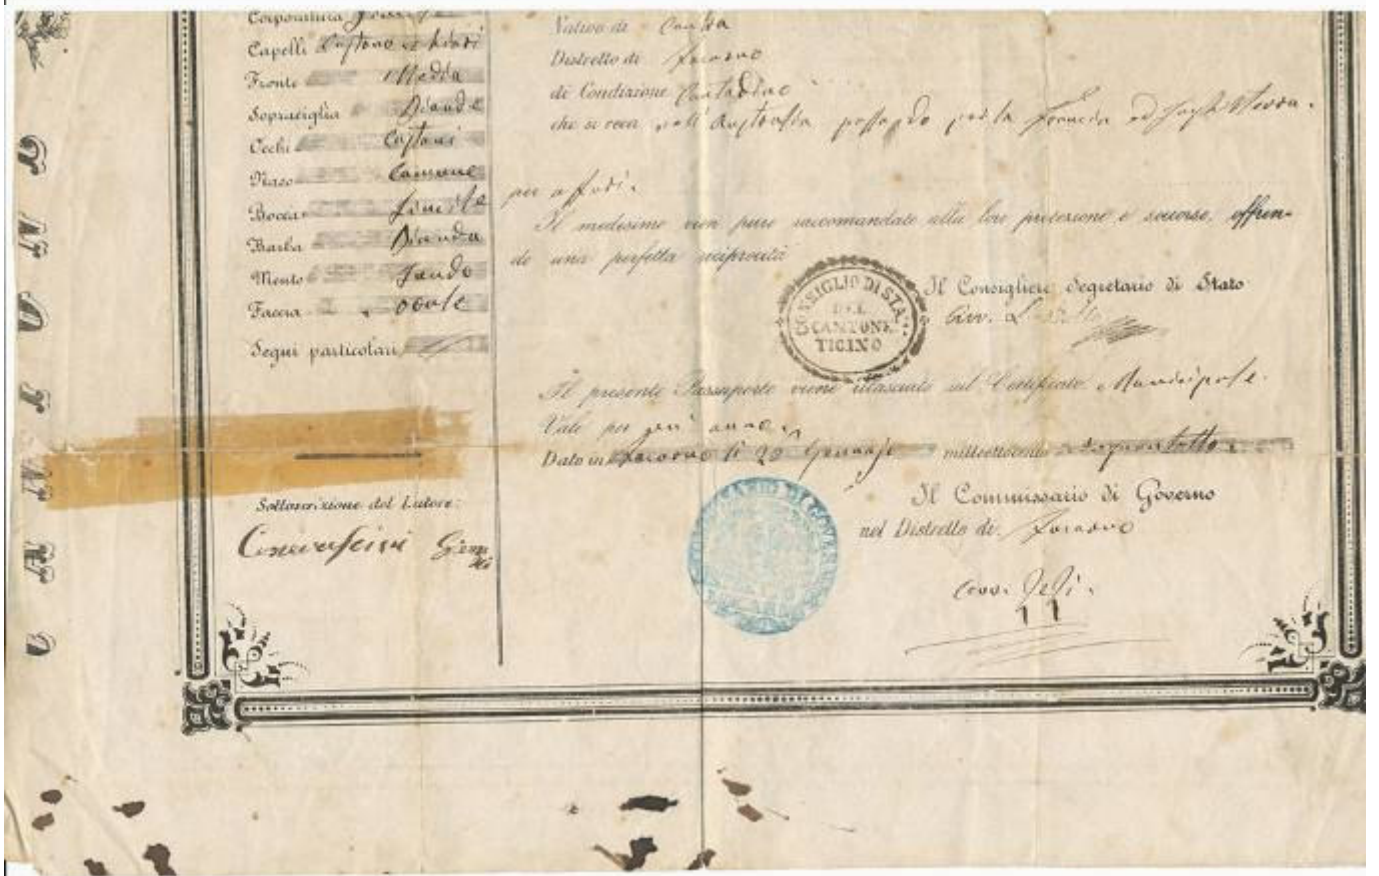 Corporatura
Capelli Castano
Fronte Media
Sopraciglia Bionde
Occhi Castani
Naso Comune
Bocca Simile
Barba Bionda
Mento Tondo
Faccia ovale
Segni particolari
Sottoscrizione del Latore:
Nativo di
Distretto di Locarno
di Condizione Contadino
che si reca nell'Australia passando per la Francia ed Inghilterra.
per affari.
Il medesimo vien pure raccomandato alla loro protezione e soccorso, offren-
do una perfetta reciprocità
CONSIGLIO DI STATO
DEL
CANTONE
TICINO
Il Consigliere Segretario di Stato
Avv.
Il presente Passaporto viene rilasciato sul Certificato Municipale.
Vale per
Dato in Locarno li 20 Gennajo milleottocento cinquantotto
Il Commissario di Governo
nel Distretto di Locarno
COMMISSARIO DI GOVERNO